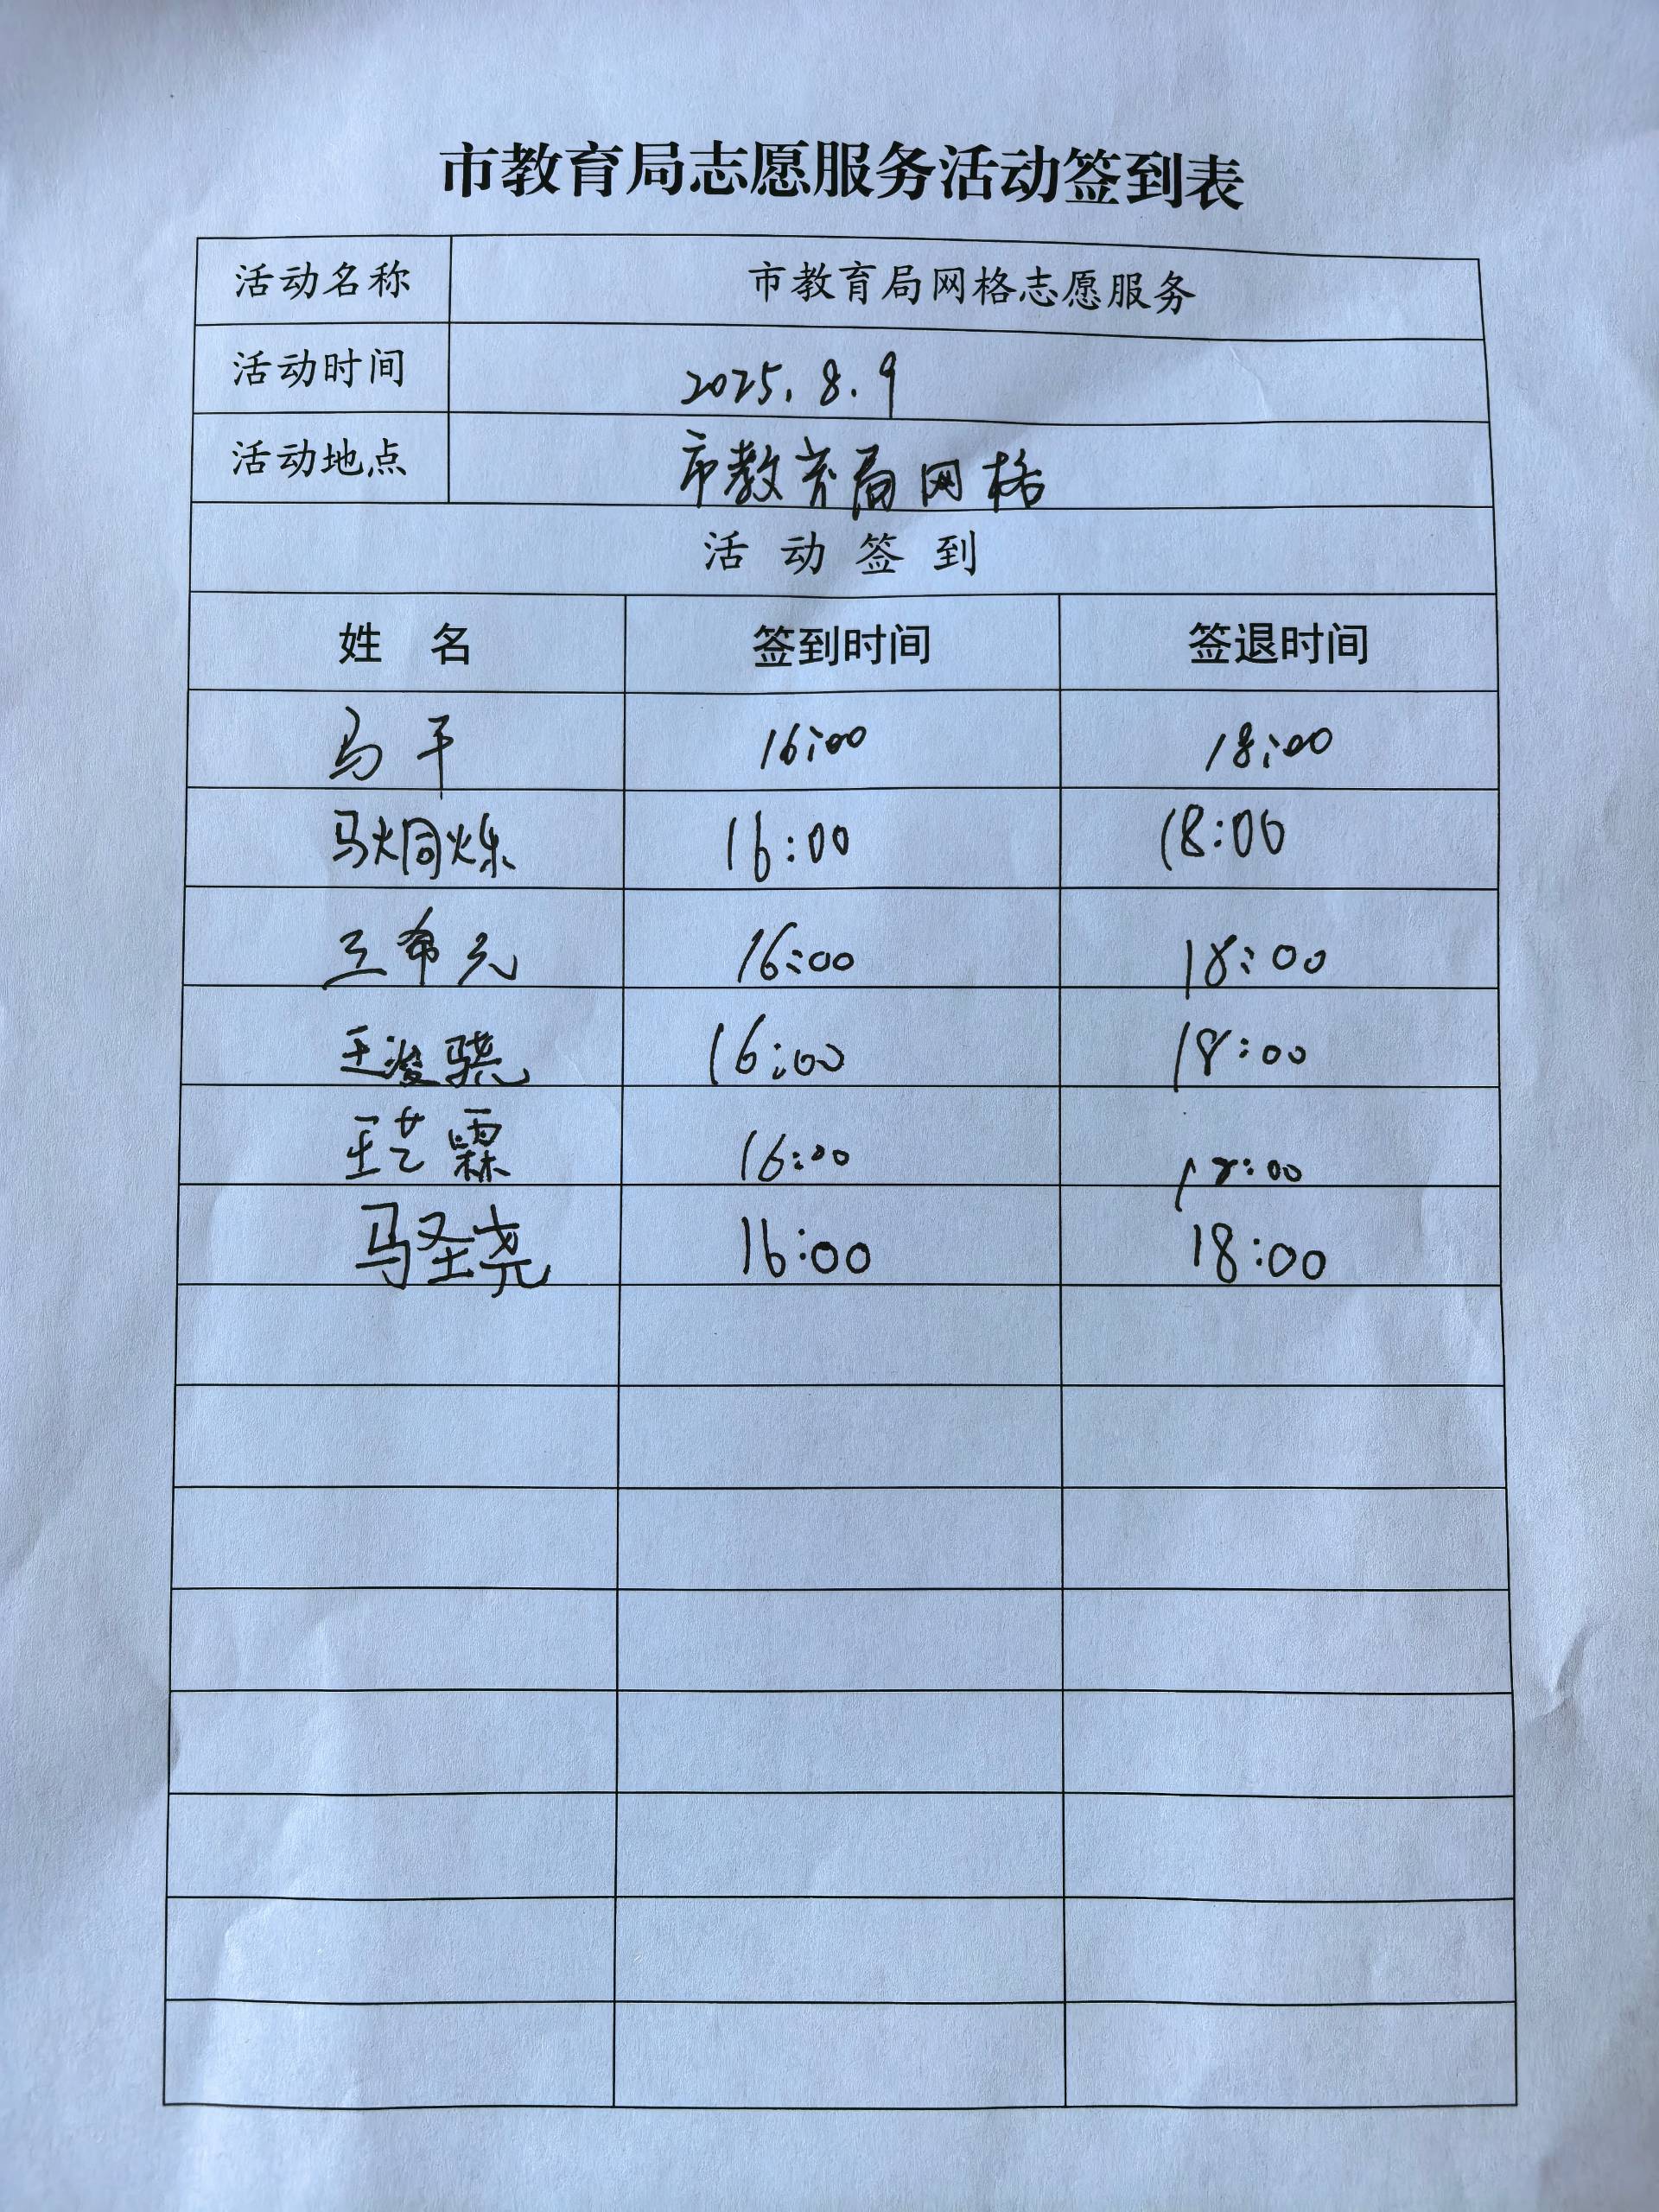 市教育局志愿服务活动签到表
活动名称 市教育局网格志愿服务
活动时间 2025.8.9
活动地点 市教育局网格
活动签到
姓 名 签到时间 签退时间
马干 16:00 18:00
马烔烁 16:00 18:00
王希元 16:00 18:00
王浚骁 16:00 18:00
王艺霖 16:00 18:00
马圣尧 16:00 18:00